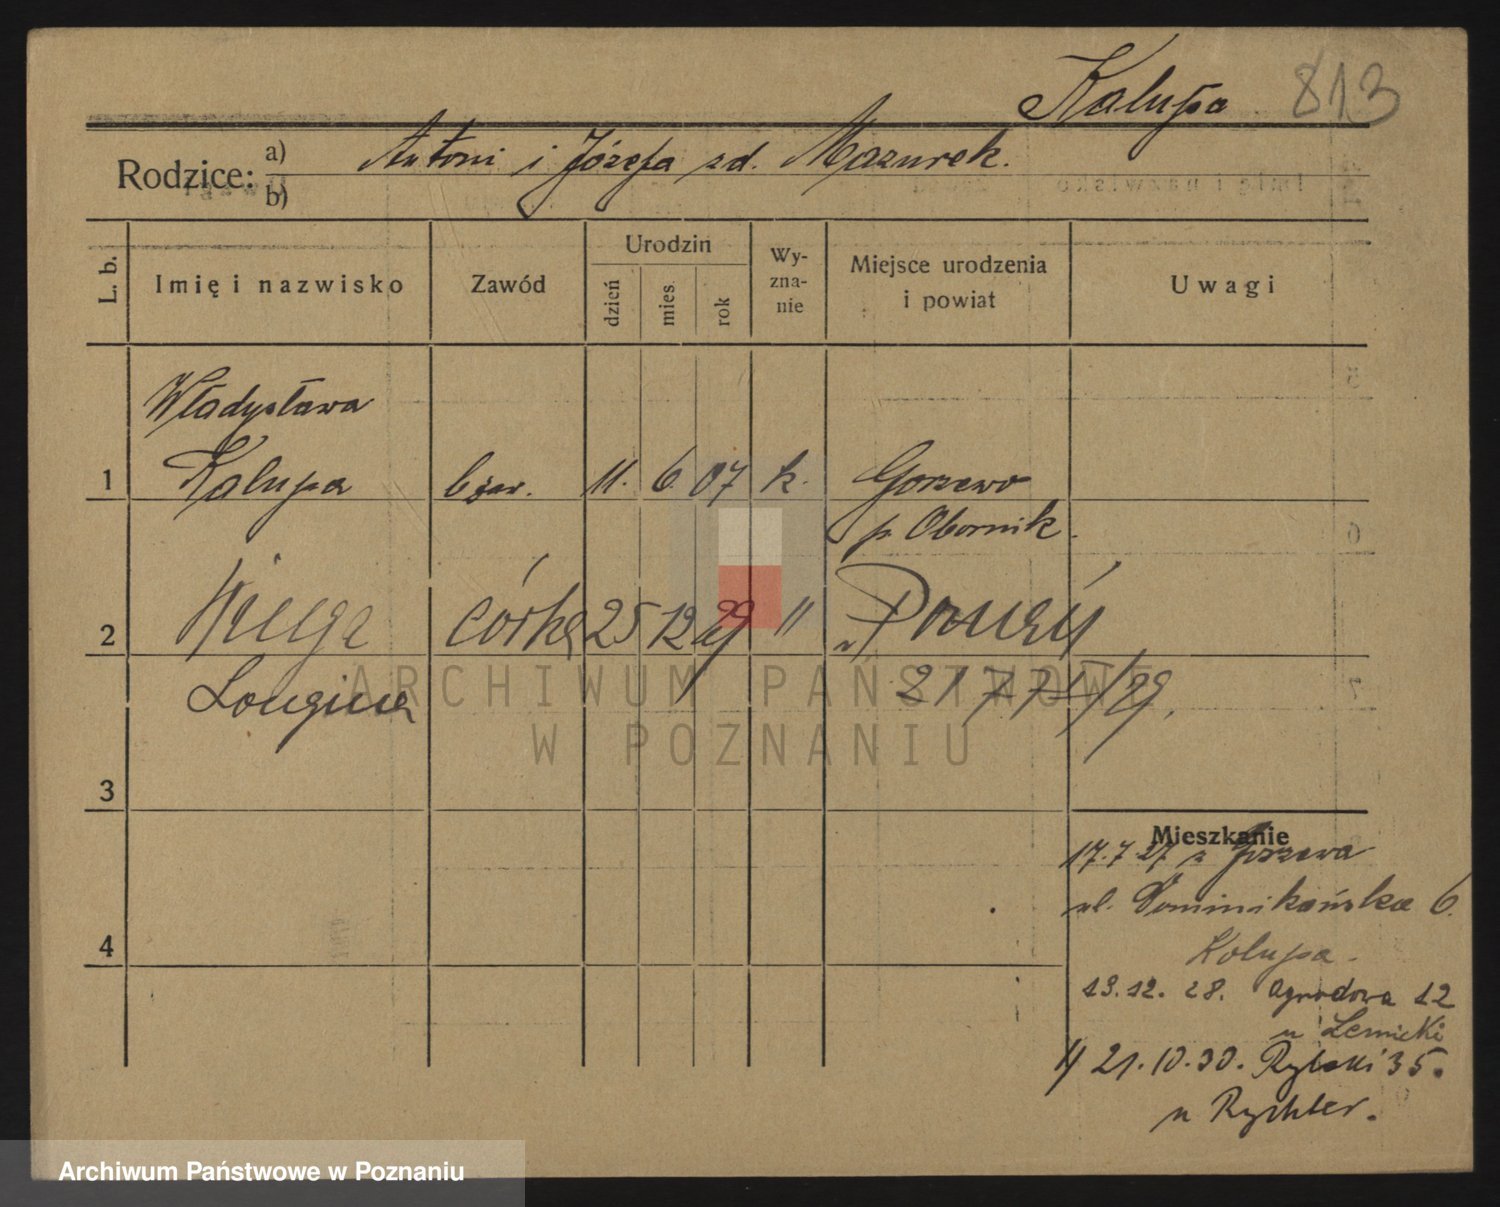 Kalupa 813
Rodzice: a) Antoni i Józefa zd. Mazurek.
b)
L. b. Imię i nazwisko Zawód Urodzin dzień mies. rok Wyznanie Miejsce urodzenia i powiat Uwagi
Władysława
1 Kalupa 11. 6. 07 k. Gorzewo
p. Obornik.
2 Kinga córka 25 12 29 " Poznań
Longina 29.
3
Mieszkanie
17.7 27 z Gorzewa
ul. Dominikańska 6.
4
Kalupa.
13.12. 28. Ogrodowa 12
u Lemicki
1/ 21.10.30. Rybaki 35.
u Rychter.
ARCHIWUM PAŃSTWOWE
W POZNANIU
Archiwum Państwowe w Poznaniu